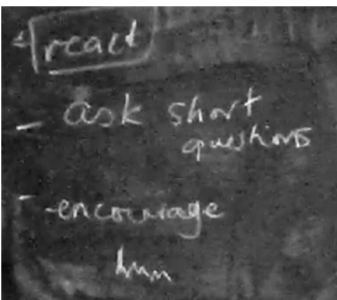 - react
- ask short
questions
- encourage
hmm